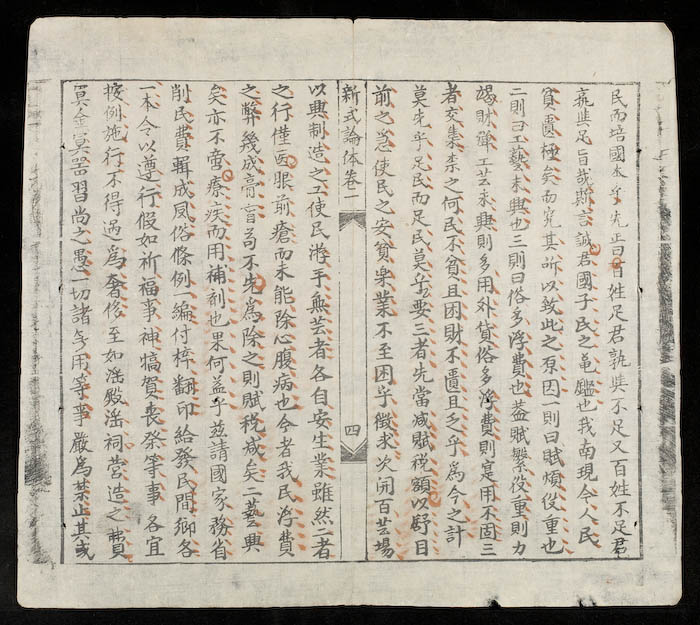 民而培國本乎先正曰百姓足君孰與不足又百姓不足君
孰與足旨哉斯言誠君國子民之龜鑑也我南現今人民
貧匱極矣而究其所以致此之原因一則曰賦煩役重也
二則曰工藝未興也三則曰俗多浮費也蓋賦繁役重則力
竭財殫工芸未興則多用外貨俗多浮費則寔用不固三
者交集柰之何民不貧且困財不匱且乏乎爲今之計
莫先乎足民而足民莫乎要三者先當减賦税額以舒目
前之急使民之安貧樂業不至困乎徵求次開百芸塲
新式論体卷一
四
以興制造之工使民游手無芸者各自安生業雖然二者
之行僅医眼前瘡而未能除心腹病也今者我民浮費
之弊幾成膏肓苟不先爲除之則賦税减矣二藝興
矣亦不啻療疾而用補剤也果何益乎茲請國家務省
削民費輯成風俗條例一編付梓翻印給發民間鄉各
一本令以遵行假如祈福事神犒賀喪祭等事各宜
按例施行不得過爲奢侈至如滛殿滛祠營造之費
冥金冥器習尚之愚一切諸等用等事嚴爲禁止其或